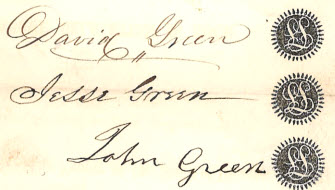 David Green
Jesse Green
John Green